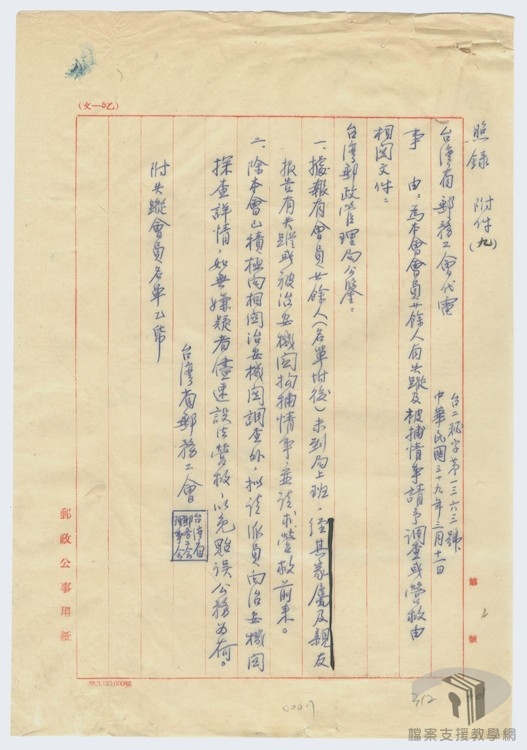 照錄 附件(九)
台灣省郵務工會代電
台二秘字第一三六三號
中華民國三十九年三月十一日
事由:為本會會員廿餘人有失蹤及被捕情事請予調查或營救由
相関文件:
台灣郵政管理局公鑒。
一、據報有會員廿餘人(名單附後)未到局上班,經其家屬及親友
報告有失蹤或被治安機関拘捕情事,並請求營救前來。
二、除本會已積極向相関治安機関調查外,擬請派員向治安機関
探查詳情,如無嫌疑者儘速設法營救,以免貽誤公務為荷。
台灣省郵務工會
附失蹤會員名單乙帋
(文一乙)
郵政公事用紙
第
號
312
檔案支援教學網